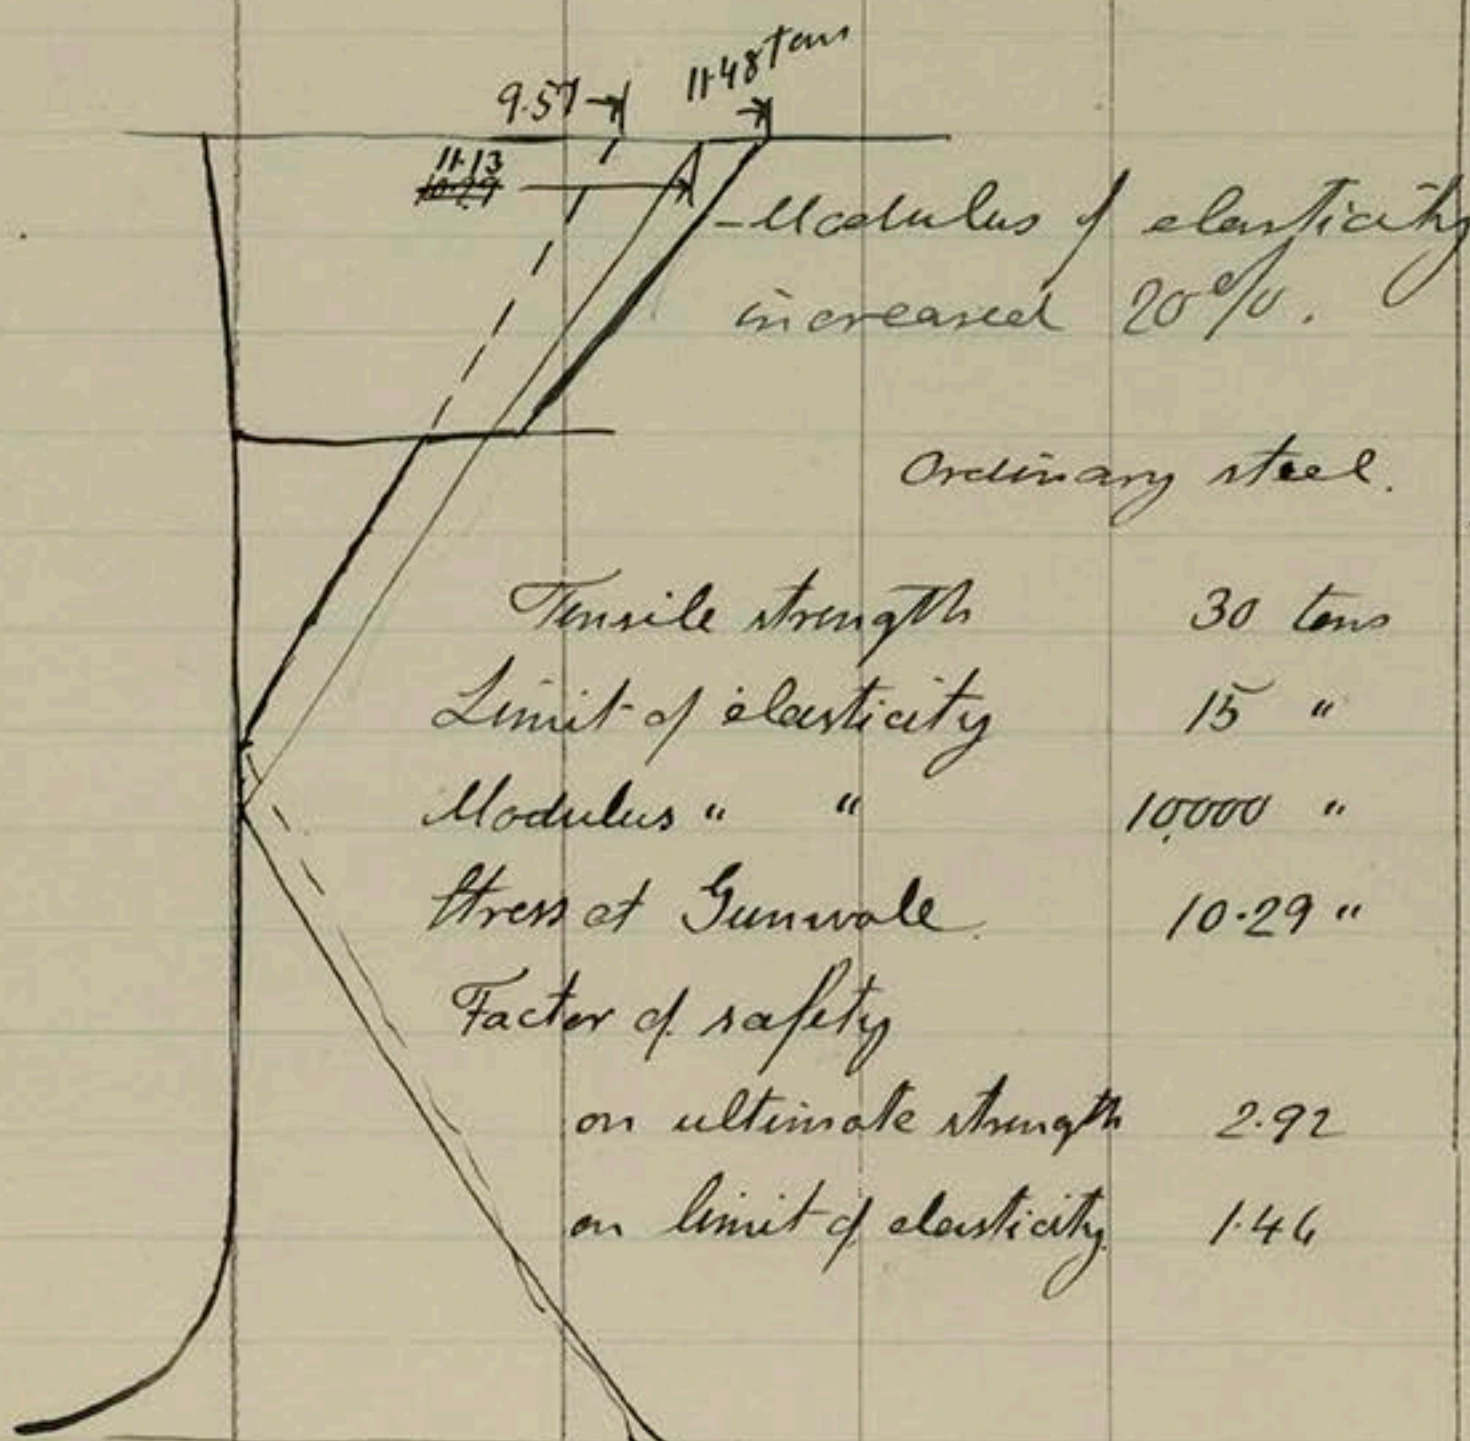 9.57
11.48 tons
11.13
10.29
- Modulus of elasticity
increased 20%.
Ordinary steel.
Tensile strength 30 tons
Limit of elasticity 15 "
Modulus " " 10,000 "
Stress at Gunwale. 10.29 "
Factor of safety
on ultimate strength 2.92
on limit of elasticity. 1.46